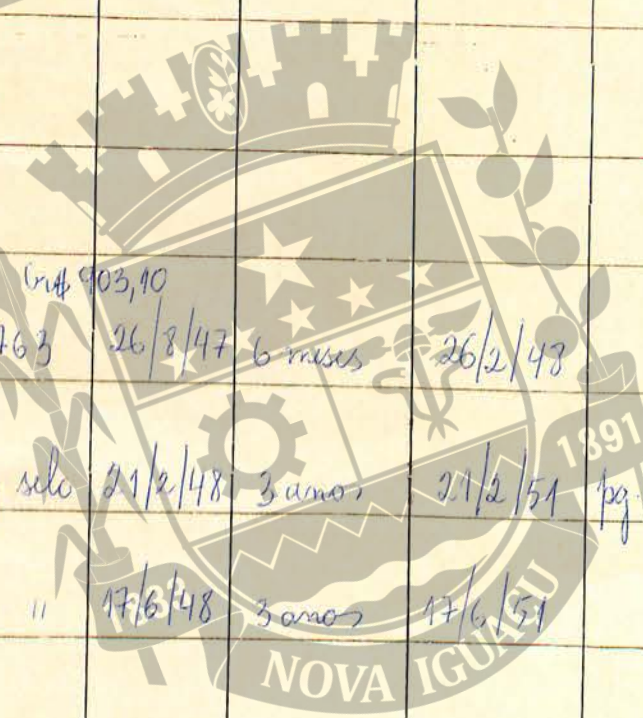 Cr$ 903,10
763 26/8/47 6 meses 26/2/48
selo 21/2/48 3 anos 21/2/51 pg
" 17/6/48 3 anos 17/6/51
1891
1833
NOVA IGUAÇU